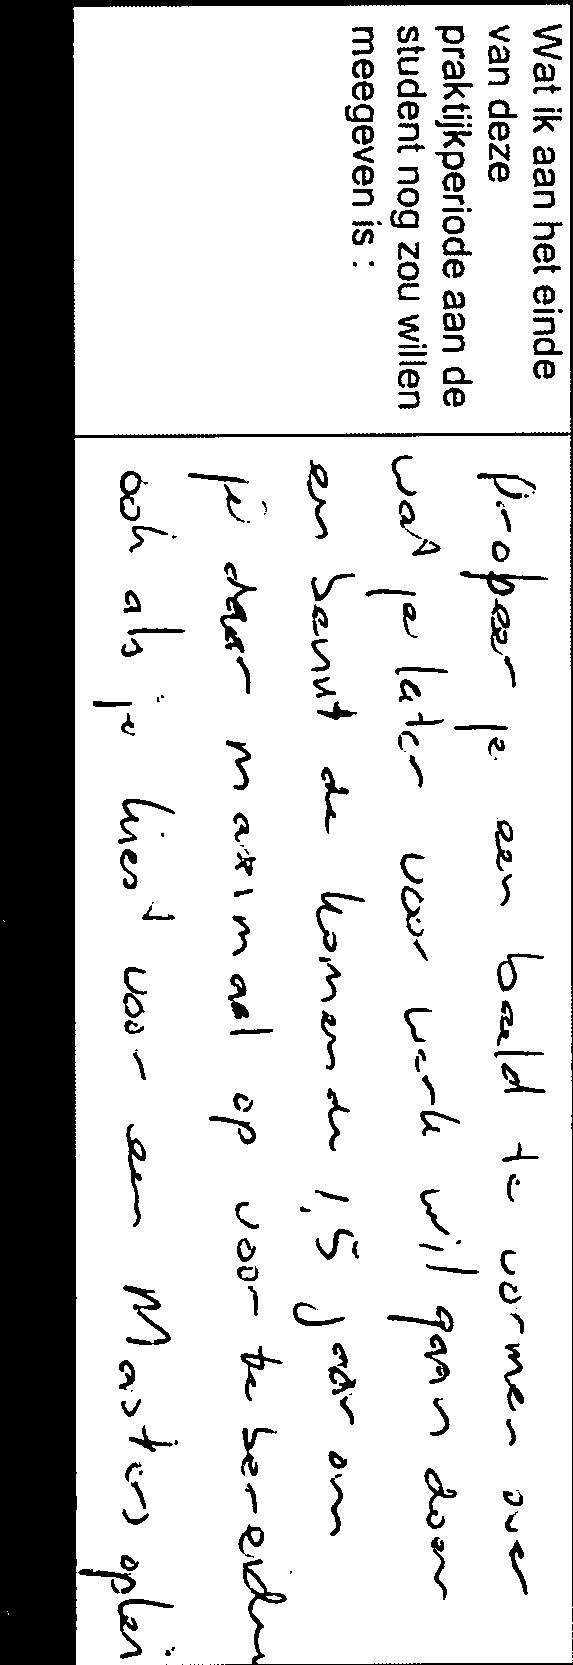 Wat ik aan het einde
van deze
praktijkperiode aan de
student nog zou willen
meegeven is :
Probeer je een beeld te vormen over
wat je later voor werk wil gaan doen
en benut de komende 1,5 jaar om
je daar maximaal op voor te bereiden
ook als je kiest voor een Masters oplei